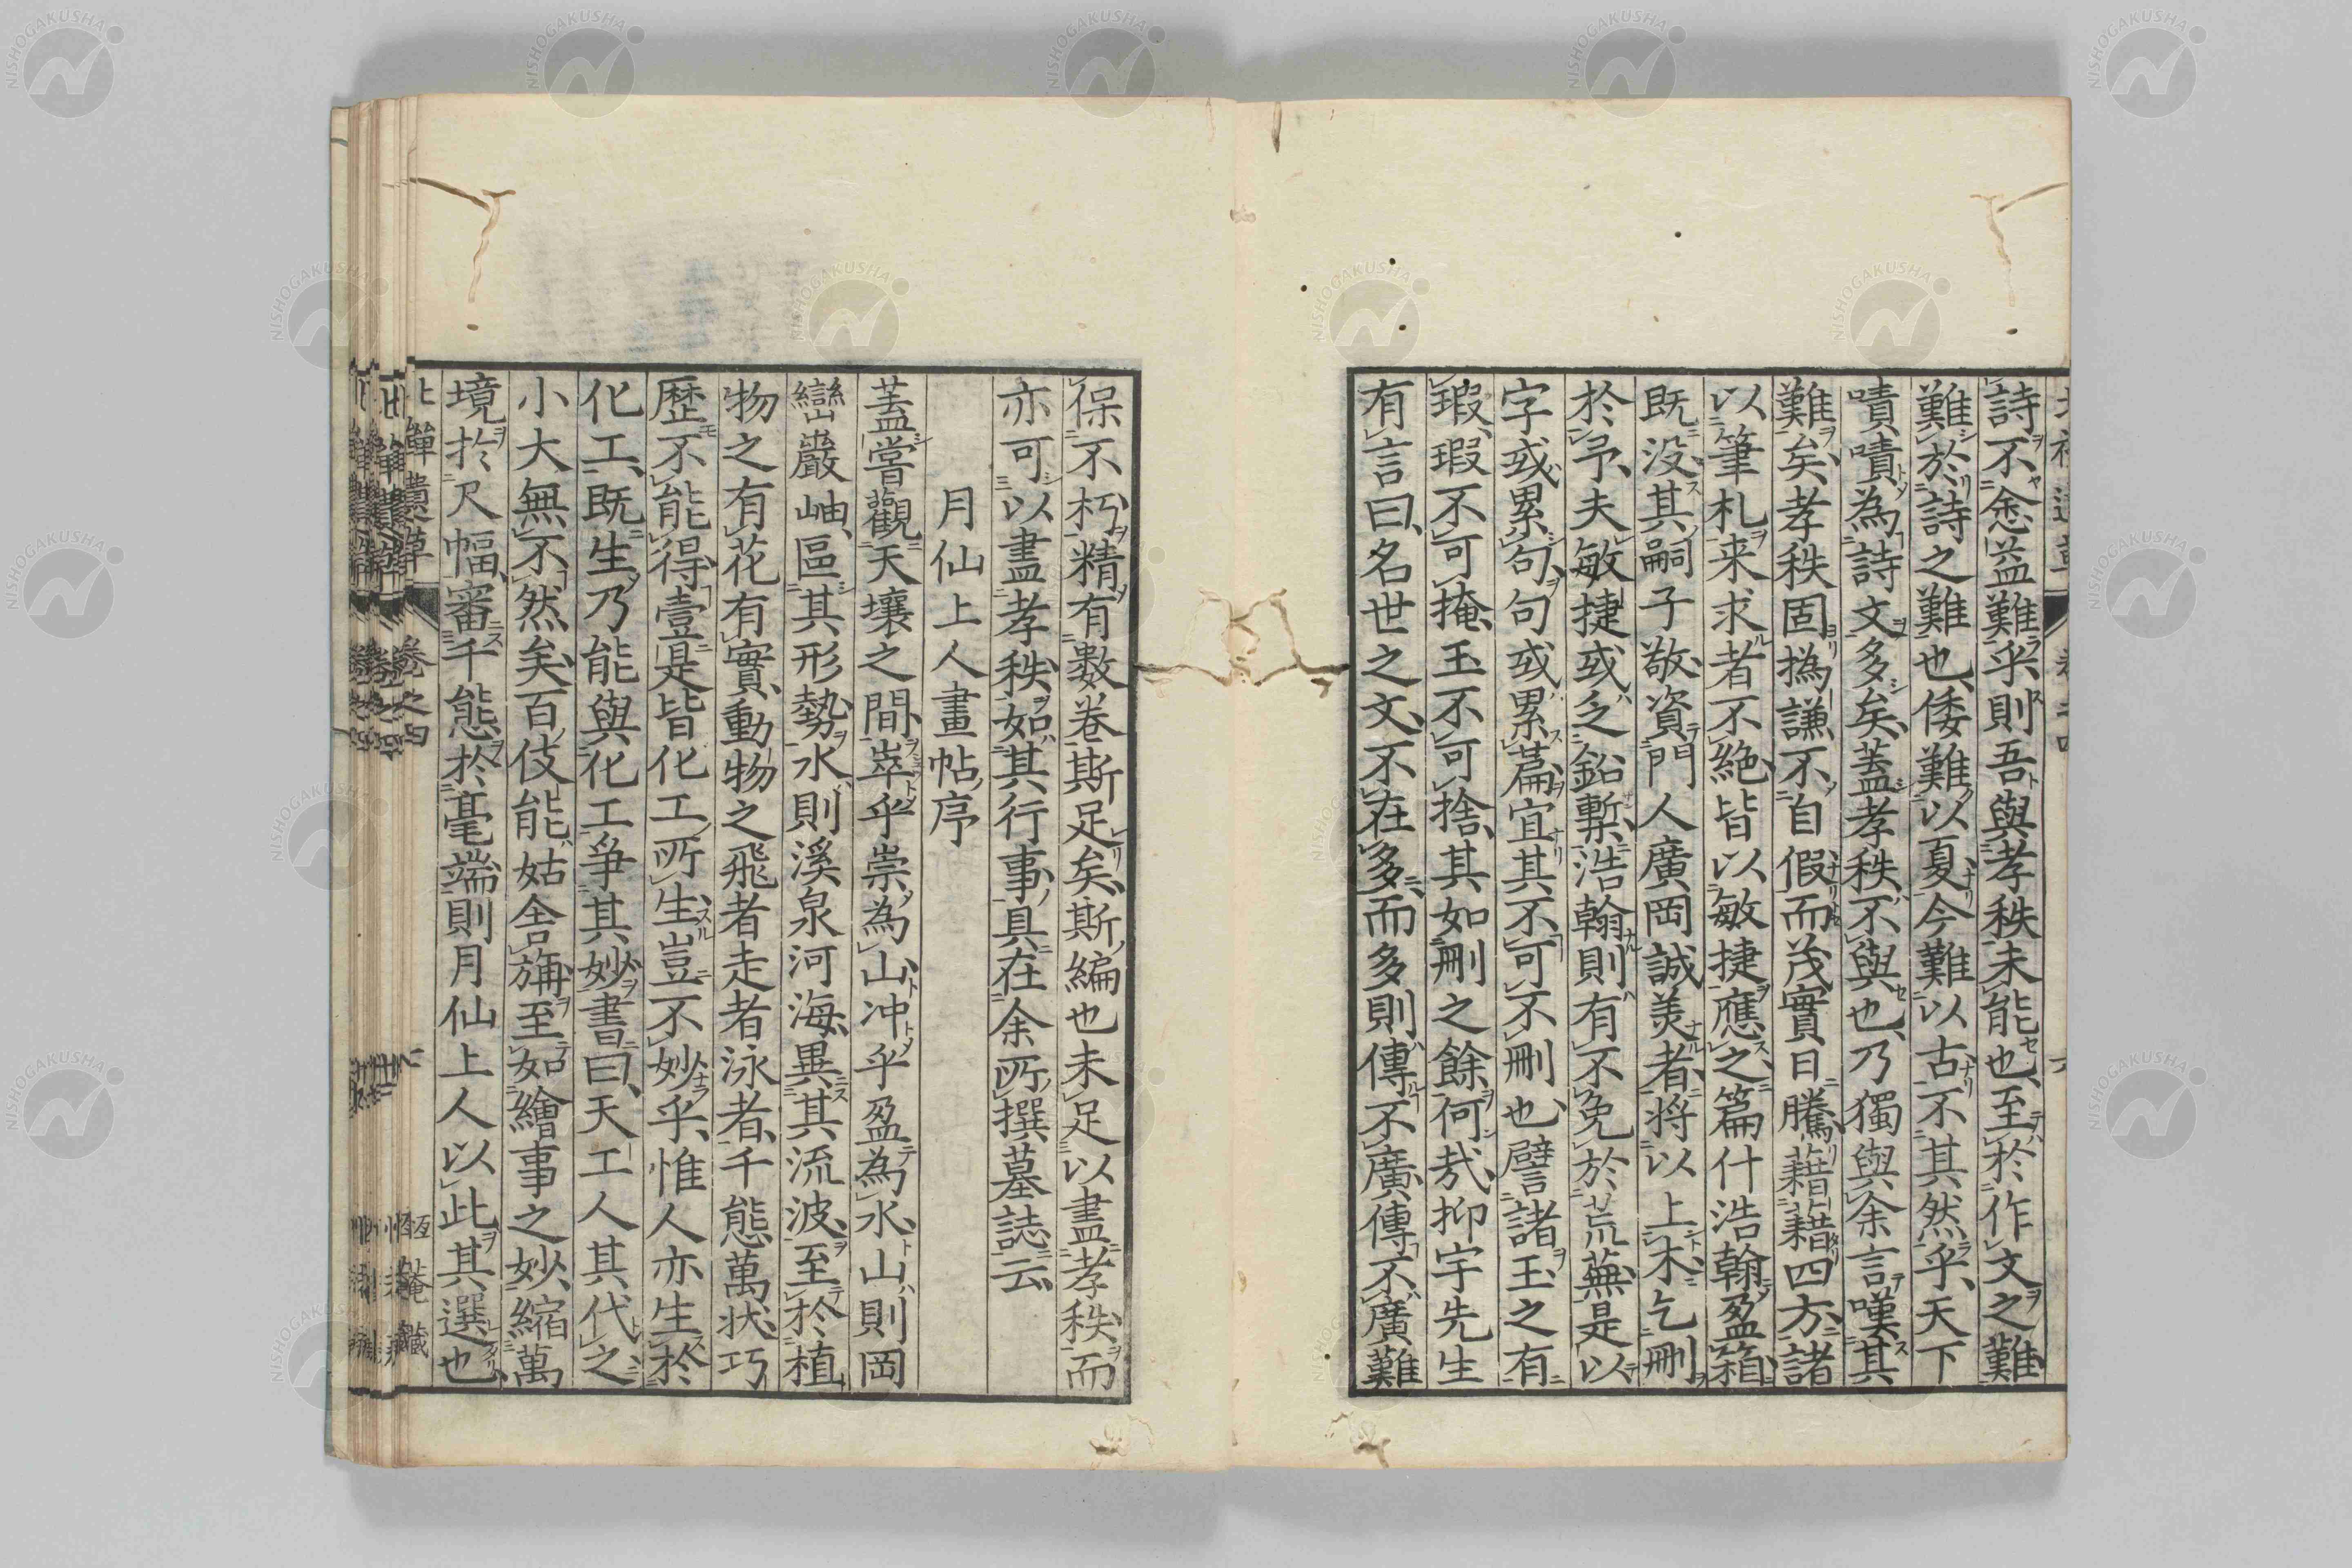 詩不愈益難乎則吾與孝秩未能也至於作文之難
難於詩之難也倭難以夏今難以古不其然乎天下
嘖嘖為詩文多矣蓋孝秩不與也乃獨與余言嘆其
難矣孝秩固撝謙不自假而茂實日騰藉藉四方諸
以筆札来求者不絶皆以敏捷應之篇什浩翰盈箱
既没其嗣子敬資門人廣岡誠美者將以上木乞刪
於予夫敏捷或乏鉛槧浩翰則有不免於荒蕪是以
字或累句句或累篇宜其不可不刪也譬諸玉之有
瑕瑕不可掩玉不可捨其如刪之餘何哉抑宇先生
有言曰名世之文不在多而多則傳不廣傳不廣難
保不朽精有數卷斯足矣斯編也未足以盡孝秩而
亦可以盡孝秩如其行事具在余所撰墓誌云
月仙上人畫帖序
蓋嘗觀天壤之間崒乎崇為山冲乎盈為水山則岡
巒巖岫區其形勢水則溪泉河海異其流波至於植
物之有花有實動物之飛者走者泳者千態萬状巧
歷不能得壹是皆化工所生豈不妙乎惟人亦生於
化工既生乃能與化工争其妙書曰天工人其代之
小大無不然矣百伎能姑舍旃至如繪事之妙縮萬
境於尺幅審千態於毫端則月仙上人以此其選也
卷之四
NISHOGAKUSHA